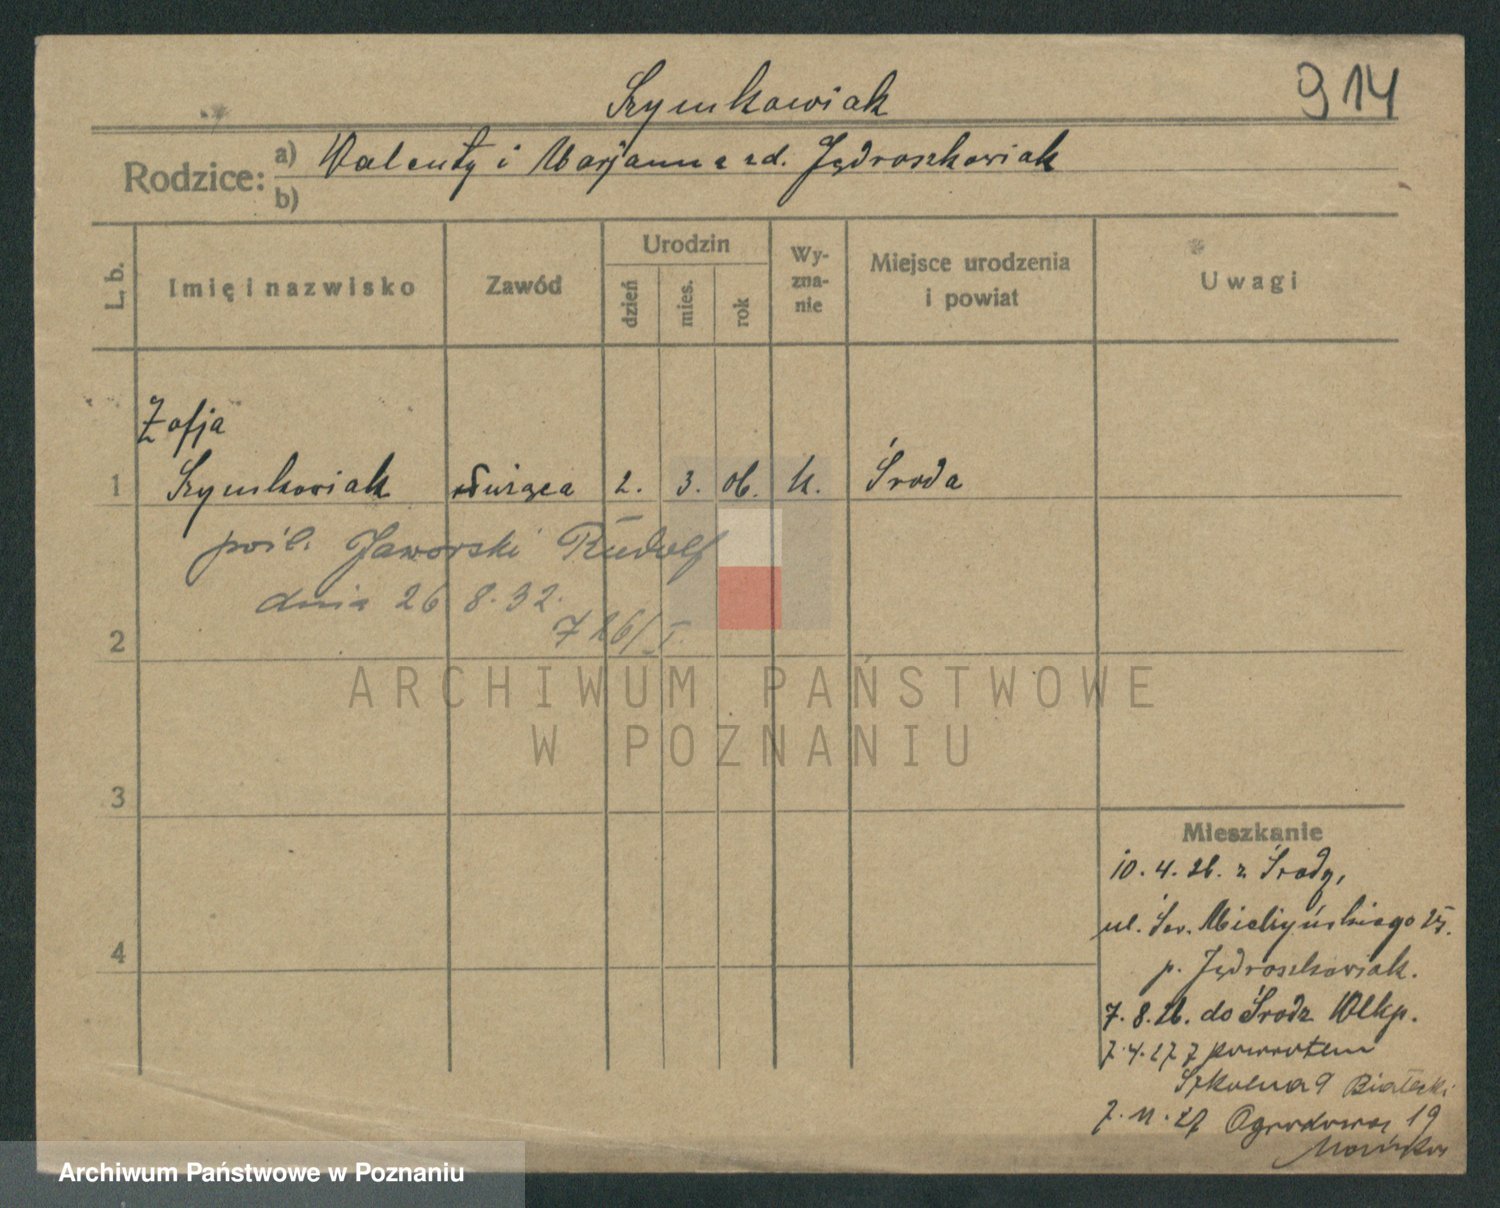 914
Szymkowiak
Rodzice: a) Walenty i Marjanna zd. Jędroszkowiak
b)
L. b.
Imię i nazwisko
Zawód
Urodzin
dzień
mies.
rok
Wy-
zna-
nie
Miejsce urodzenia
i powiat
Uwagi
Zofja
1 Szymkowiak służąca 2. 3. 06. k. Środa
pośl. Jaworski Rudolf
dnia 26 8. 32.
726/I.
2
ARCHIWUM PAŃSTWOWE
W POZNANIU
3
4
Mieszkanie
10. 4. 26. z Środy,
ul. Sew. Mielżyńskiego
p. Jędroszkowiak.
7. 8. 26. do Środz Wlkp.
7. 4. 27 z powrotem
Szkolna 9 Białecki
7. 11. 27 Ogrodowa 19
Archiwum Państwowe w Poznaniu